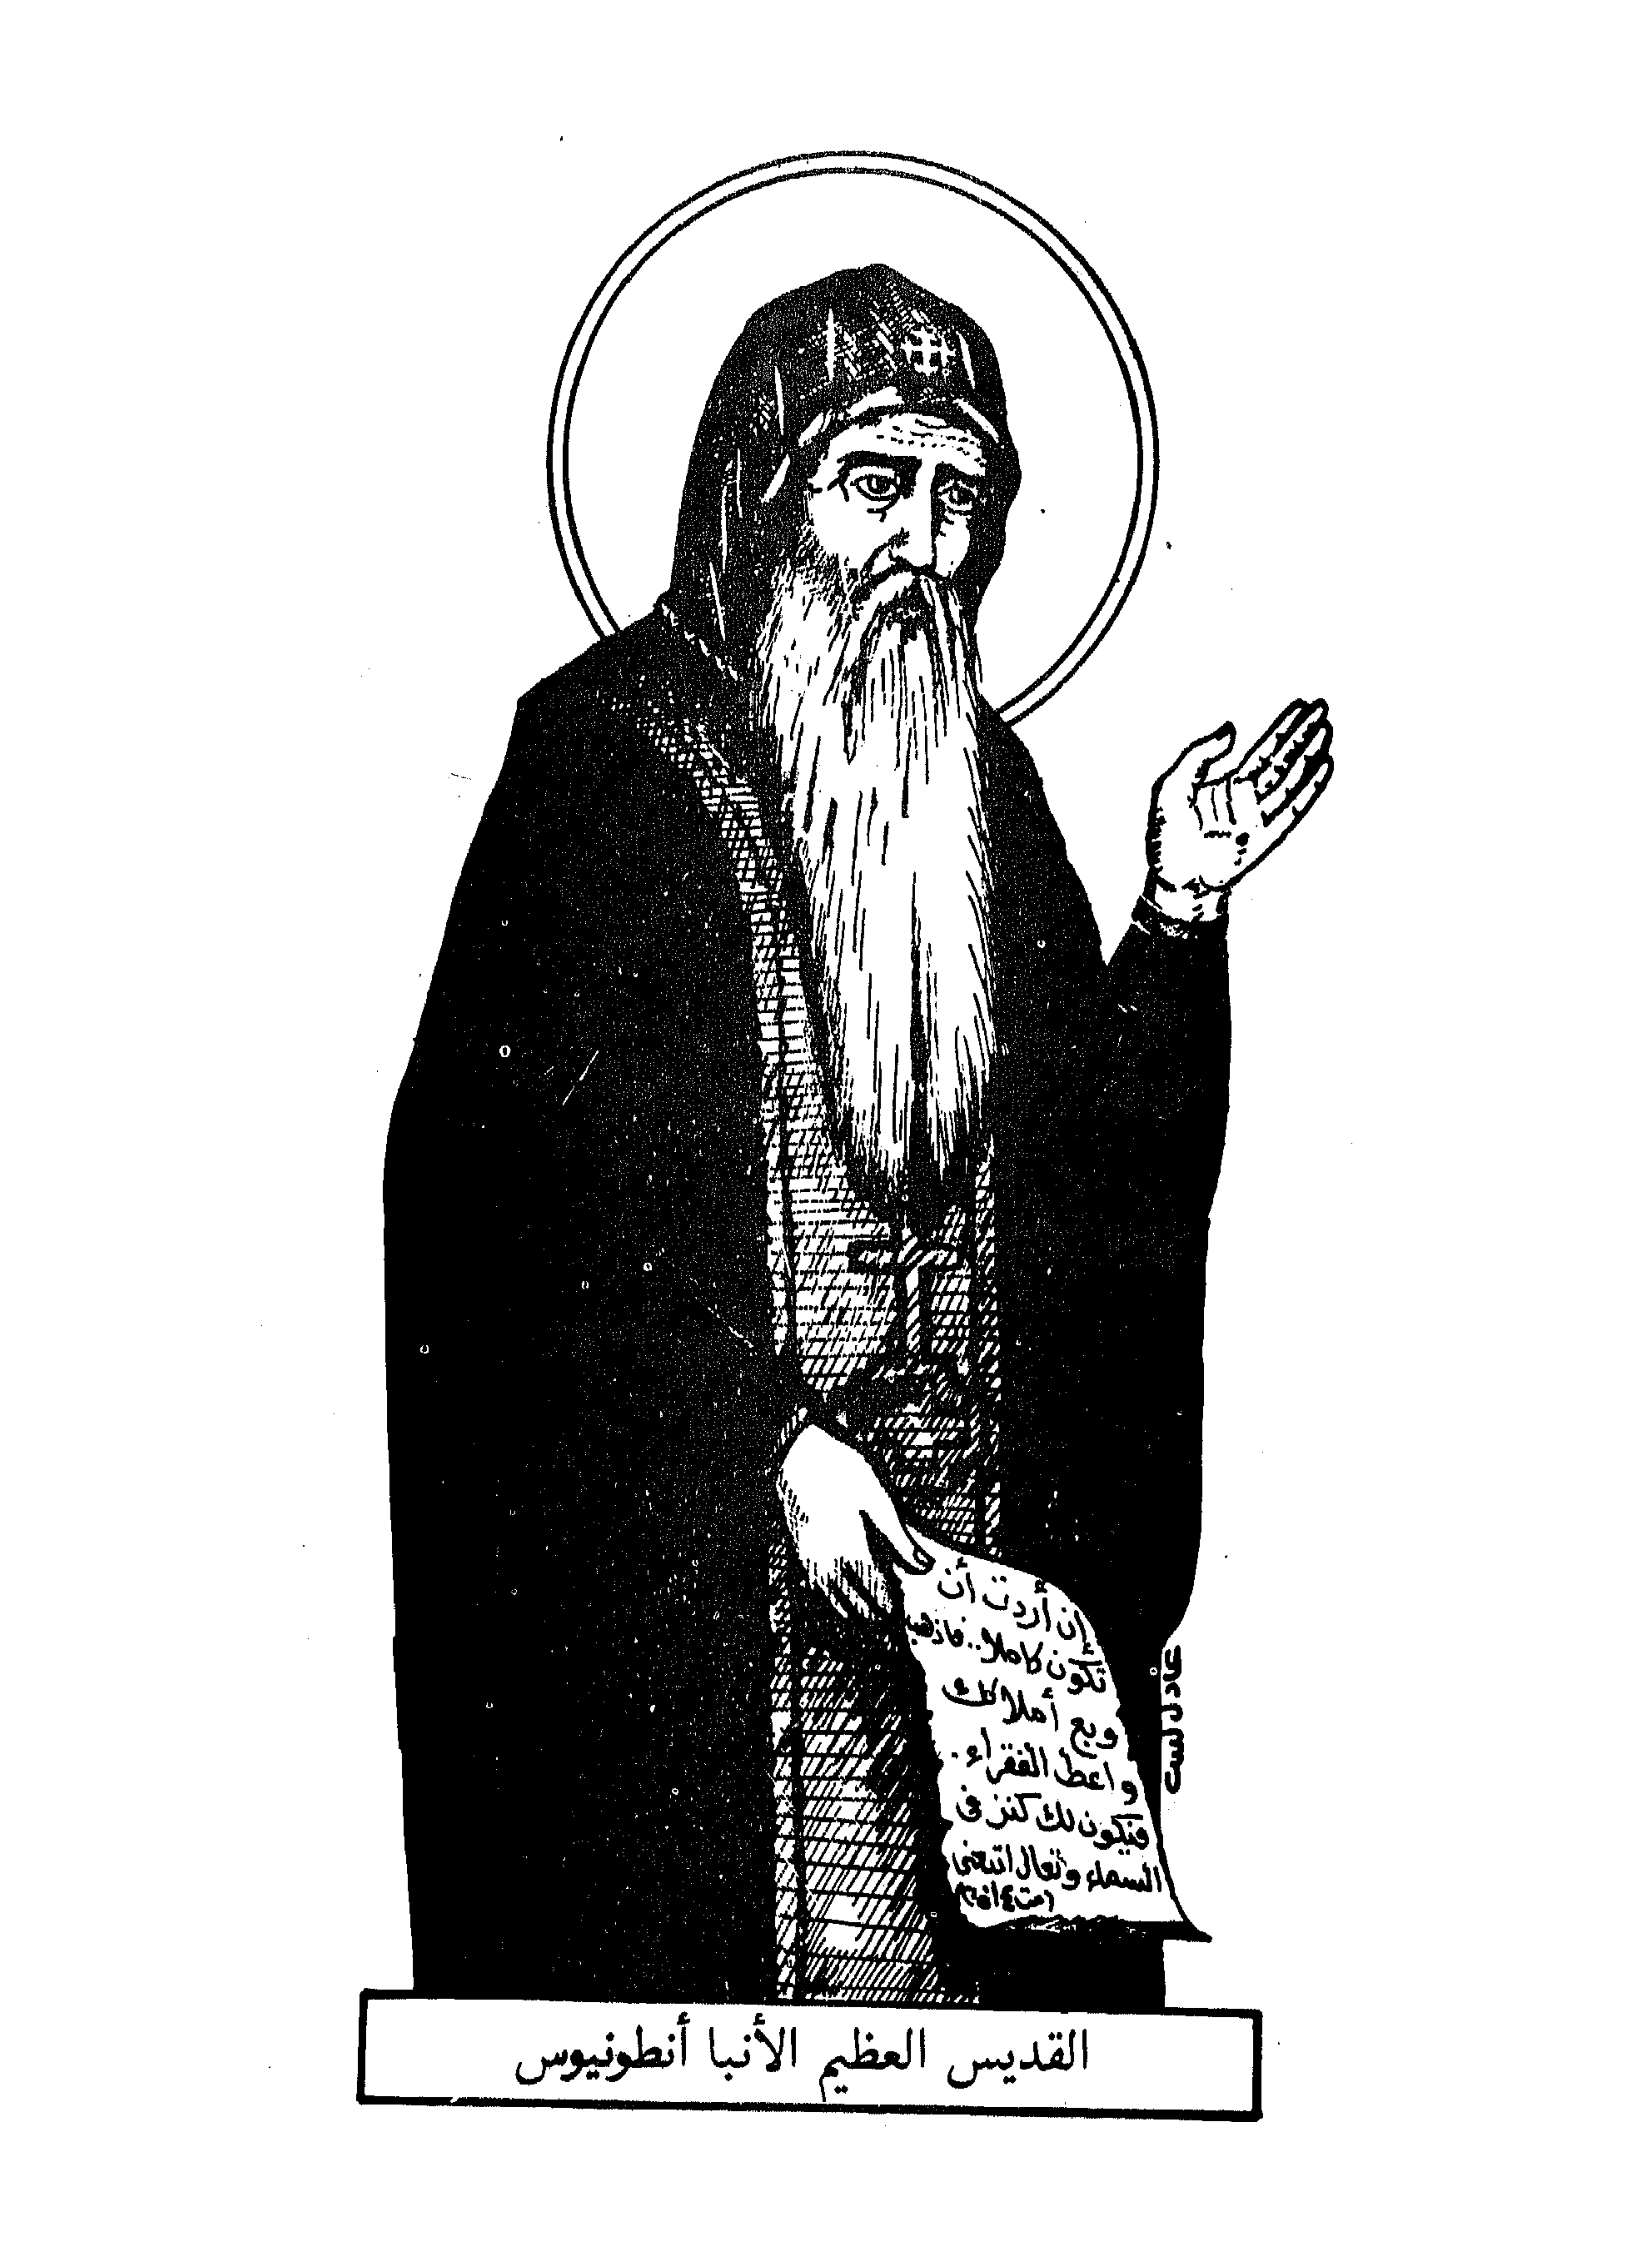 إن أردت أن
تكون كاملا.. فاذهب
وبع أملاكك
واعط الفقراء.
فيكون لك كنز فى
السماء وتعال اتبعنى
القديس العظيم الأنبا أنطونيوس